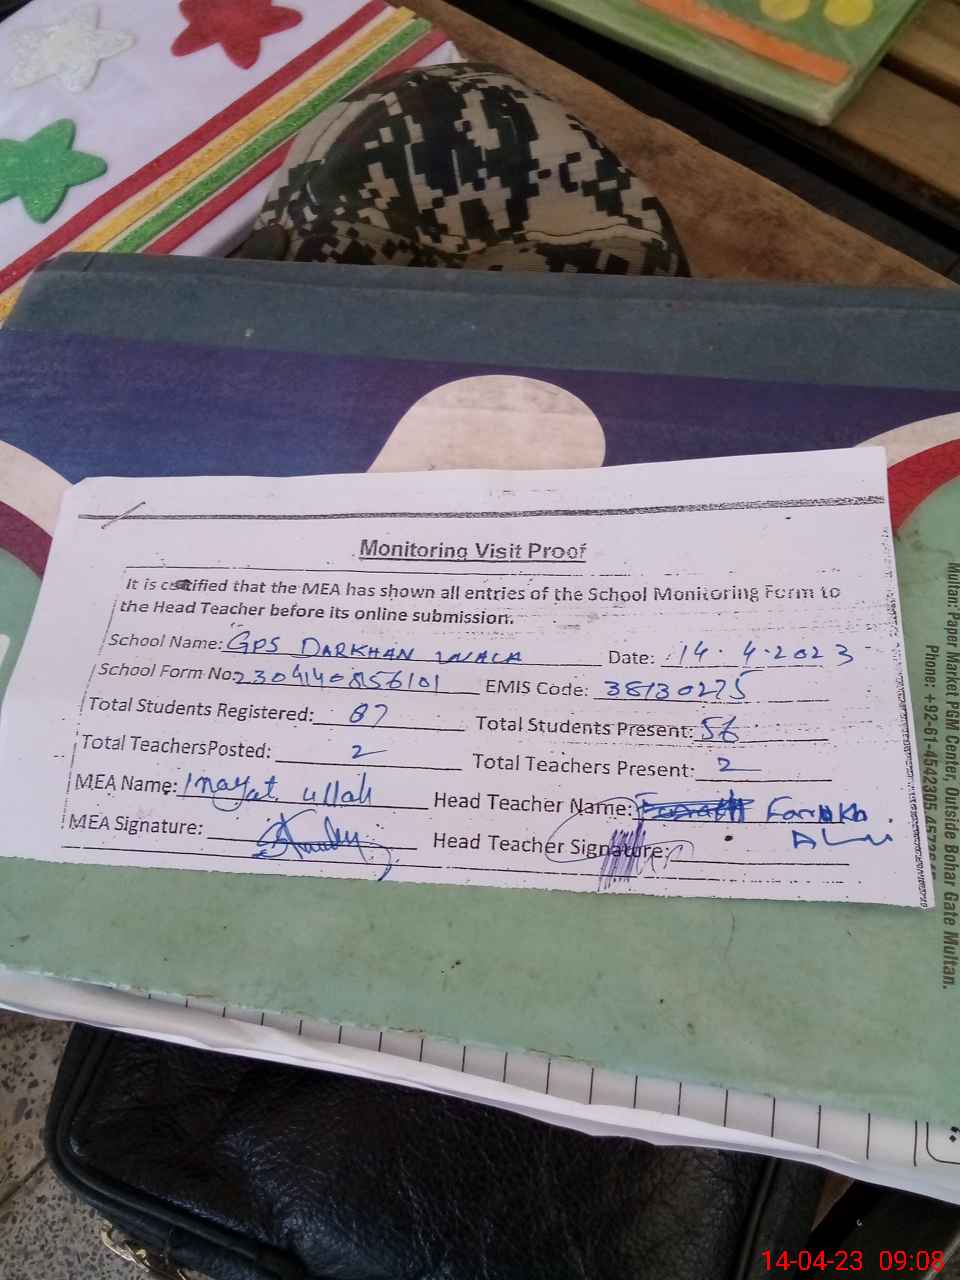 Monitoring Visit Proof
It is certified that the MEA has shown all entries of the School Monitoring Form to
the Head Teacher before its online submission.
School Name: GPS DARKHAN WALA Date: 14.4.2023
School Form No: 2304140856101 EMIS Code: 38130275
Total Students Registered: 87 Total Students Present: 56
Total TeachersPosted: 2 Total Teachers Present: 2
MEA Name: Inayat ullah Head Teacher Name: Farrukh
MEA Signature: Head Teacher Signature:
Multan: Paper Market PGM Center, Outside Bohar Gate Multan.
Phone: +92-61-4542305
14-04-23 09:08